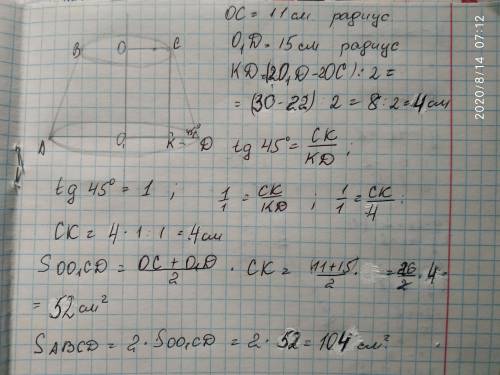 OC = 11 см радиус
O₁D = 15 см радиус
KD = (2O₁D - 2OC) : 2 =
= (30 - 22) : 2 = 8 : 2 = 4 см
B O C
A O₁ K D 45°
tg 45° = CK/KD ;
tg 45° = 1 ; 1/1 = CK/KD ; 1/1 = CK/4 ;
CK = 4 · 1 : 1 = 4 см
SOO₁CD = (OC + O₁D)/2 · CK = (11 + 15)/2 · = 26/2 · 4 =
= 52 см²
SABCD = 2 · SOO₁CD = 2 · 52 = 104 см²
2020/8/14 07:12